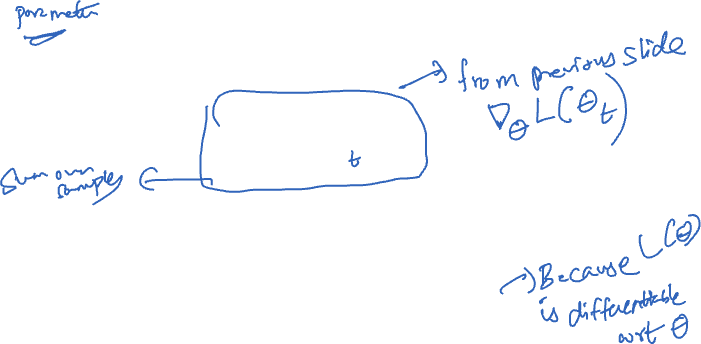 parameter
from previous slide
∇_θ L(θ_t)
t
Sum over
samples
Because L(θ)
is differentiable
wrt θ